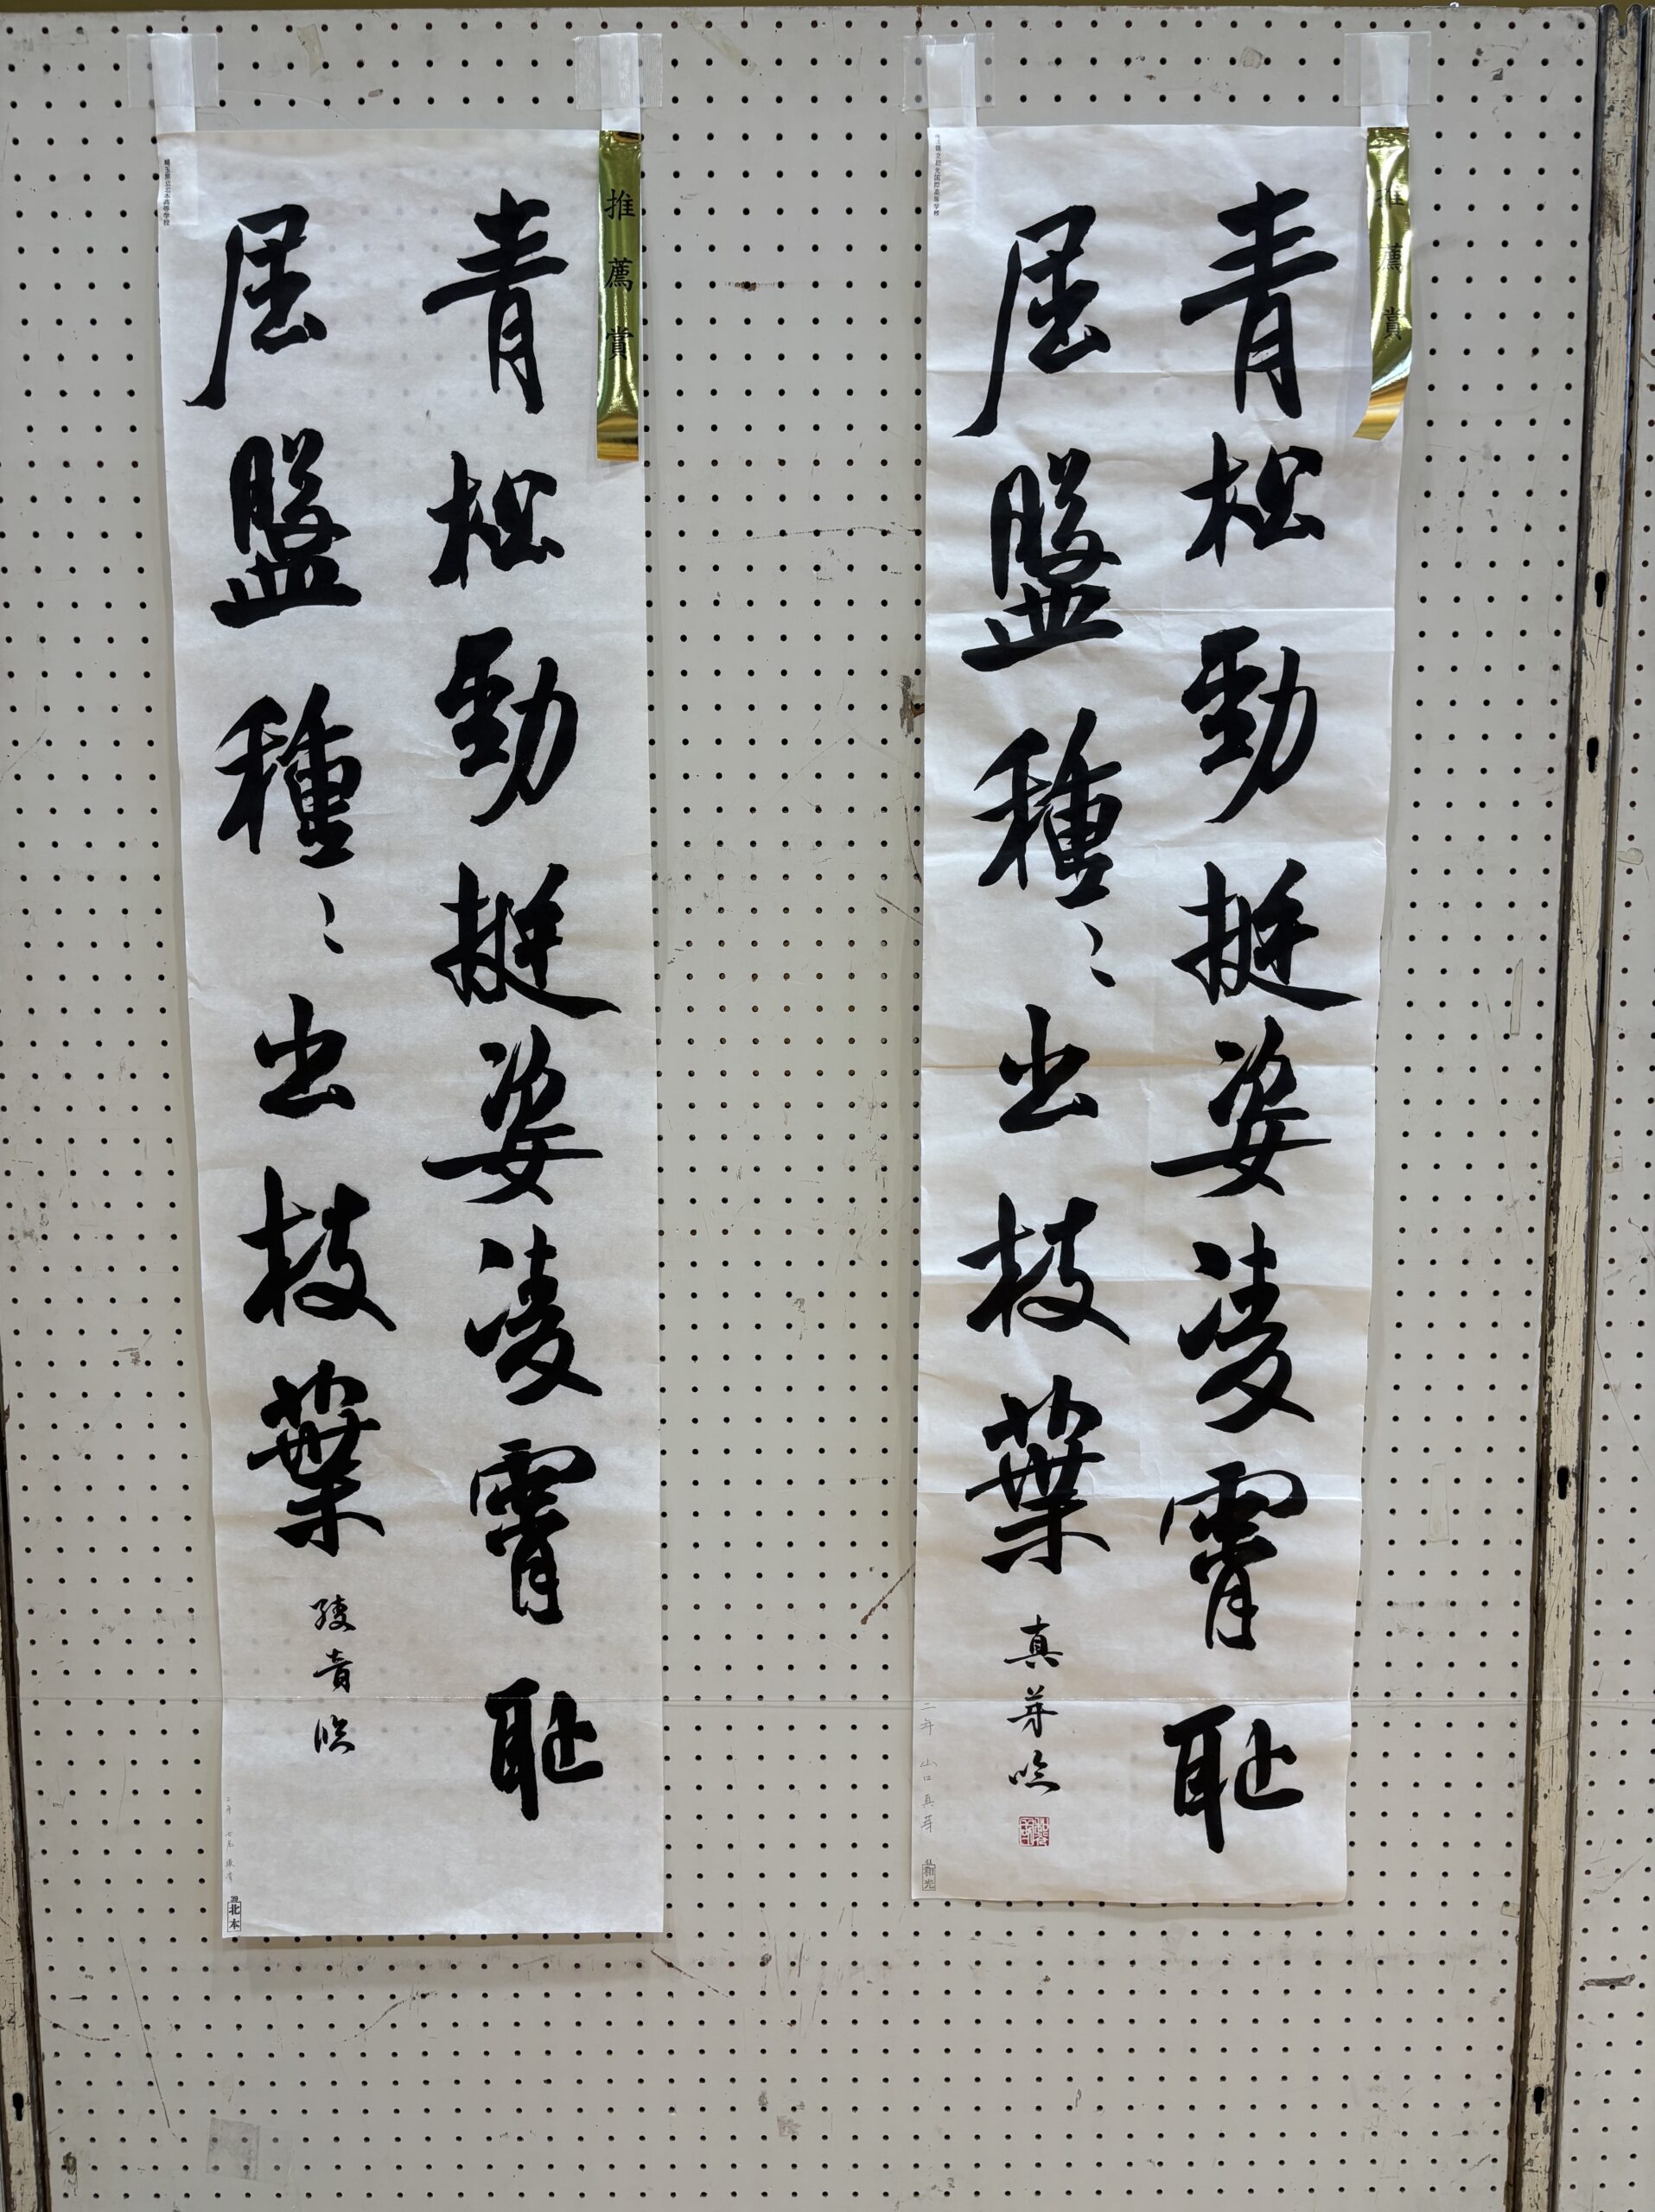 推薦賞
青松勁挺姿凌霄恥
屈盤種〻出枝葉
真芽臨
二年 山口真芽
和光
推薦賞
青松勁挺姿凌霄恥
屈盤種〻出枝葉
綾青臨
二年
北本